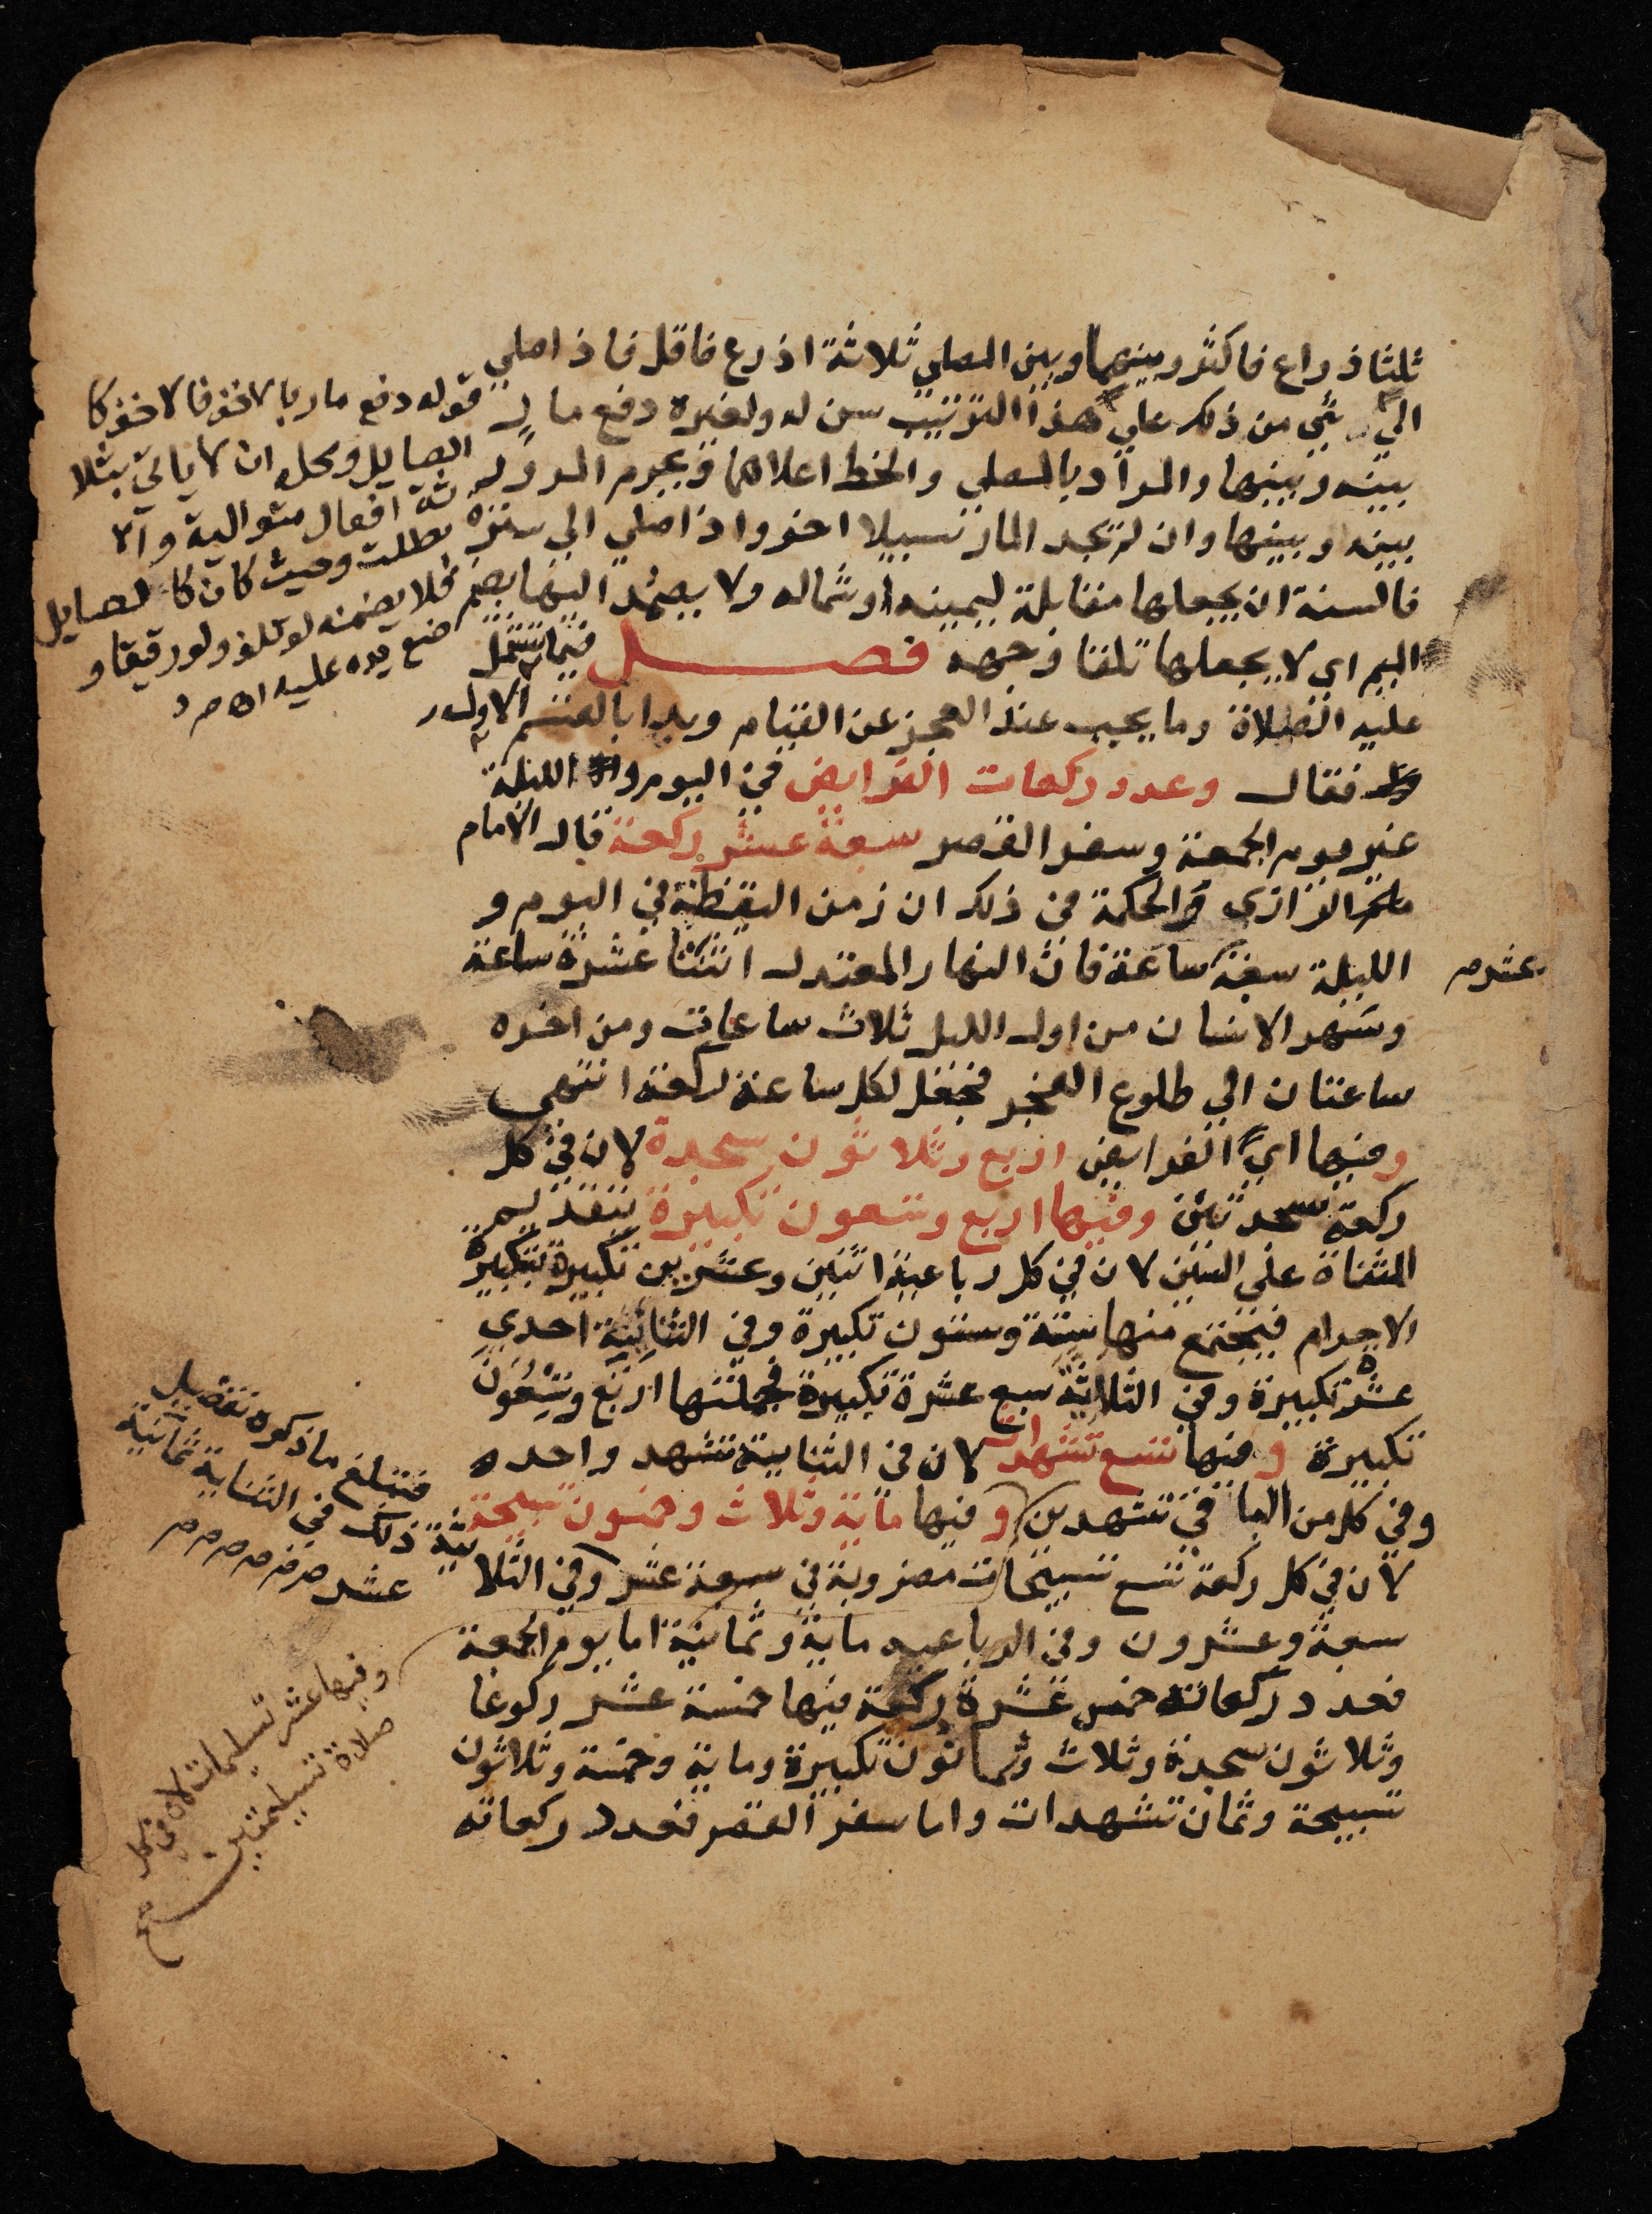 ثلثا ذراع فاكثر وبينهما وبين المصلي ثلاثة اذرع فاقل فاذا صلي
الي شي من ذلك علي هذا الترتيب سن له ولغيره دفع مار
بينه وبينها والمراد بالمصلي والخط اعلاهما ويحرم المرور
بينه وبينها وان لم يجد المار سبيلا اخر واذا صلي الي سترة
فالسنة ان يجعلها مقابلة ليمينه او شماله ولا يصمد اليها بضم
الميم اي لا يجعلها تلقا وجهه فصل فيما تشتمل
عليه الصلاة وما يجب عند العجز عن القيام وبدا بالقسم الاول
فقال وعدد ركعات الفرايض في اليوم والليلة
غير يوم الجمعة وسفر القصر سبعة عشر ركعة قال الامام
الرازي والحكمة في ذلك ان زمن اليقظة في اليوم و
الليلة سبع ساعة فان النهار المعتدل اثنتا عشرة ساعة
عشرة
وسهر الانسان من اول الليل ثلاث ساعات ومن اخره
ساعتان الي طلوع الفجر فجعل لكل ساعة ركعة انتهى
وفيها اي الفرايض اربع وثلاثون سجدة لان في كل
ركعة سجدتين وفيها اربع وتسعون تكبيرة بتقديم
المثناة على السين لان في كل رباعية اثنين وعشرين تكبيرة بتكبيرة
الاحرام فيجتمع منها ستة وستون تكبيرة وفي الثنائية احدي
عشرة تكبيرة وفي الثلاثية سبع عشرة تكبيرة فجملتها اربع وتسعون
تكبيرة وفيها تسع تشهدات لان في الثنايية تشهد واحده
وفي كل من الباقي تشهدين وفيها ماية وثلاث وخمسون تسبيحة
لان في كل ركعة تسع تسبيحات مضروبة في سبعة عشر وفي الثلاثية
سبعة وعشرون وفي الرباعيه ماية وثمانية اما يوم الجمعة
فعدد ركعاته خمس عشرة ركعة فيها خمسة عشر ركوعا
وثلاثون سجدة وثلاث وثمانون تكبيرة وماية وخمسة وثلاثون
تسبيحة وثمان تشهدات واما سفر القصر فعدد ركعاته
قوله دفع مار بالاخف فالاخف كا
الصايل ومحله ان لا ياتي بثلا
ثة افعال متوالية والا
بطلت وحيث كان كالصايل
فلا يضمنه لو تلف ولو رقيقا و
ضع يده عليه اه م ر
فتبلغ ما ذكره تفصيل
ذلك في الثنايية ثمانية
عشر
وفيها عشر تسليمات لان في كل
صلاة تسليمتين صح